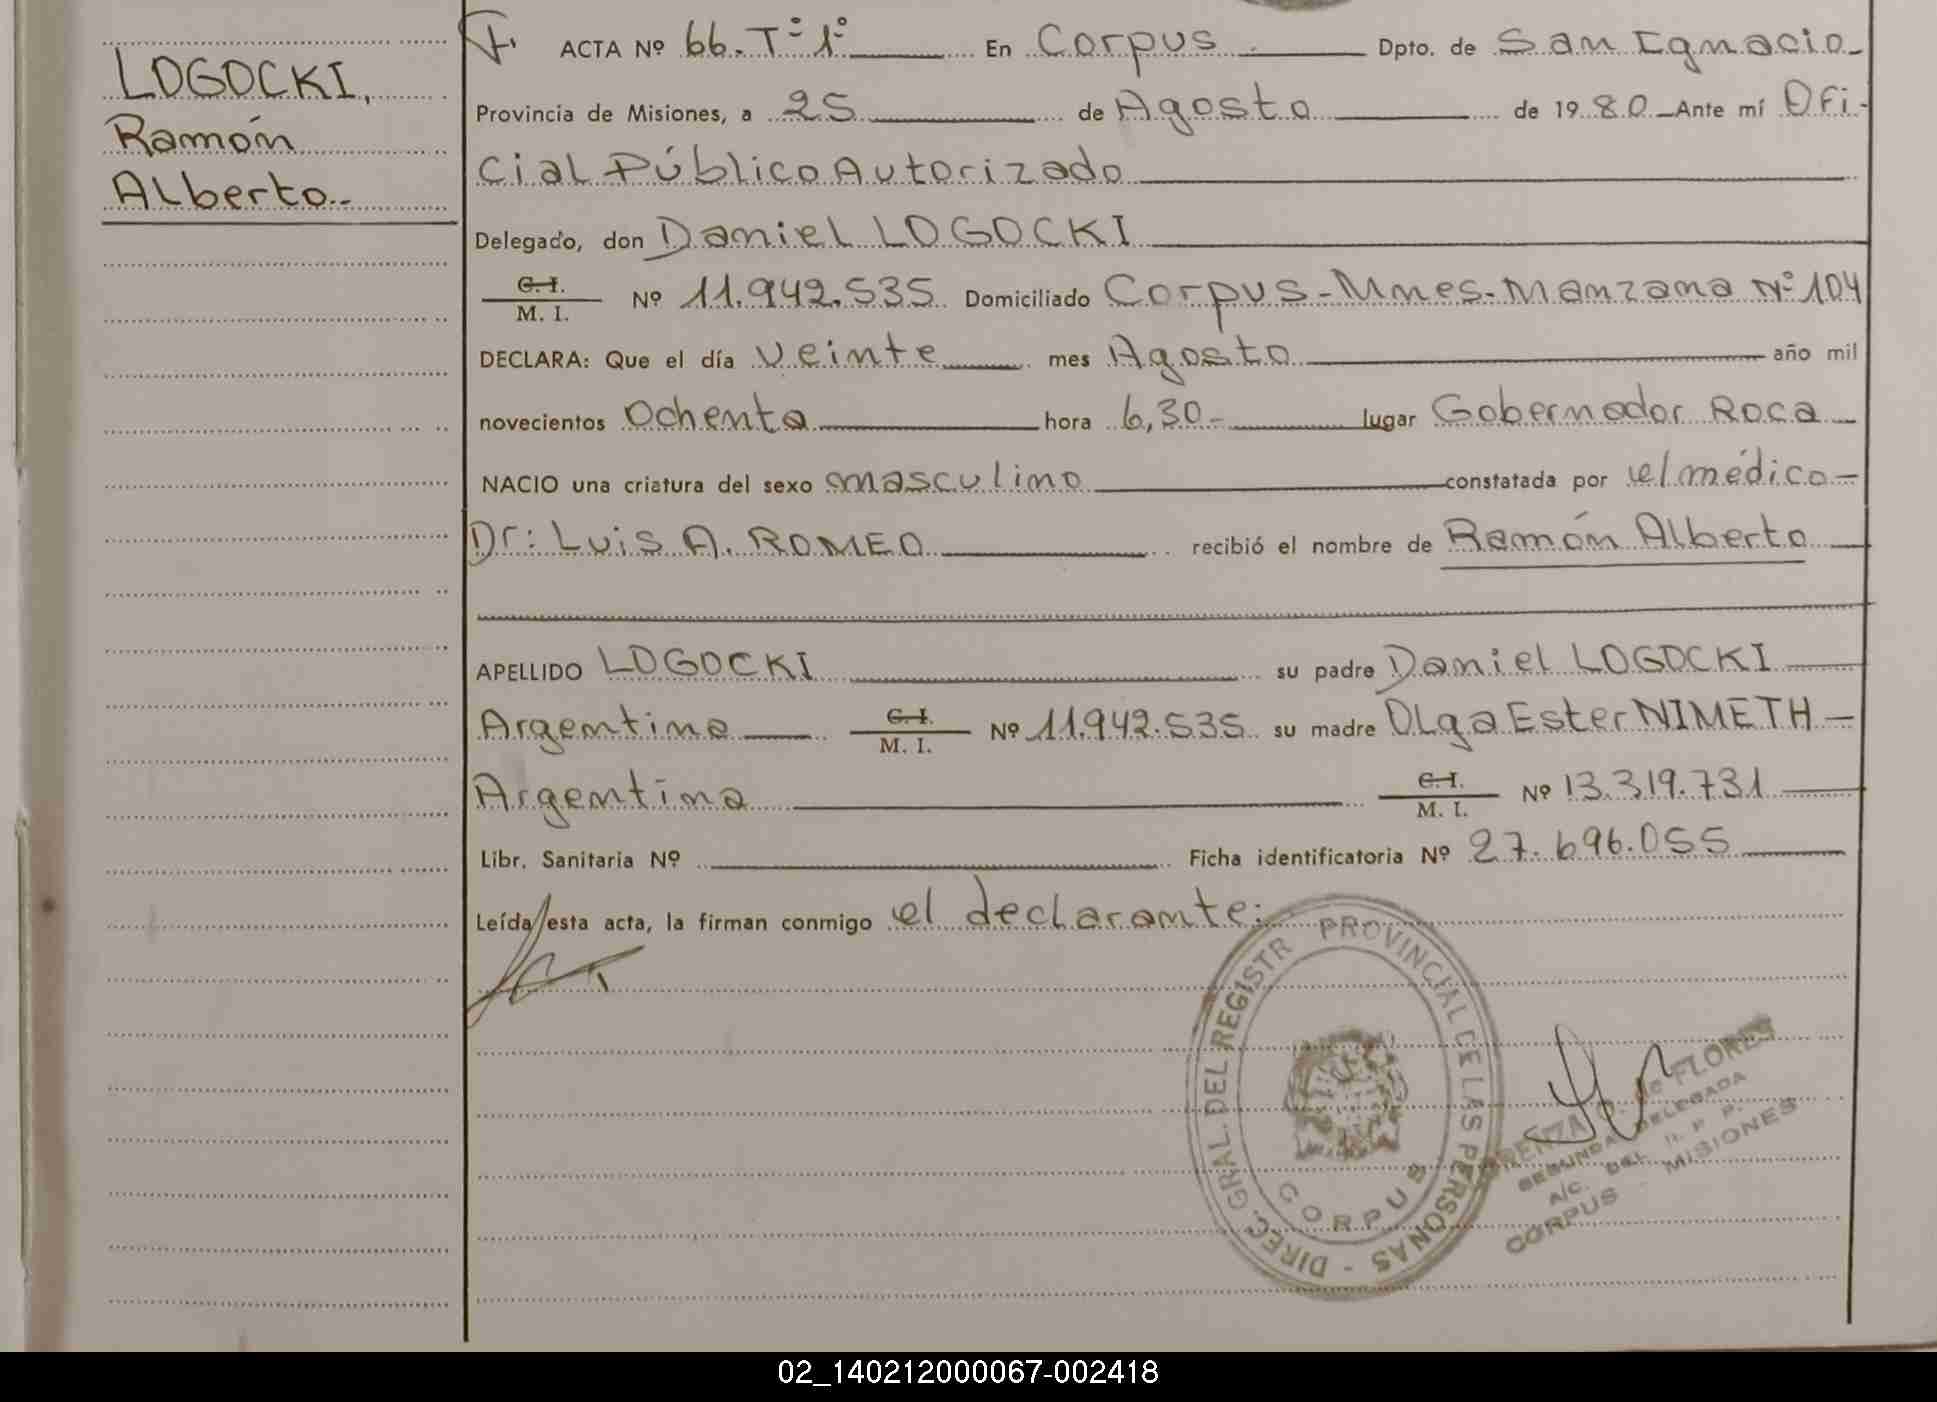 LOGOCKI,
Ramón
Alberto.-
ACTA Nº 66. Tº 1º En Corpus Dpto. de San Ignacio
Provincia de Misiones, a 25 de Agosto de 1980 Ante mí Ofi-
cial Público Autorizado
Delegado, don Daniel LOGOCKI
C. I.
M. I. Nº 11.942.535 Domiciliado Corpus-Mnes-Manzana Nº 104
DECLARA: Que el día veinte mes Agosto año mil
novecientos Ochenta hora 6,30- lugar Gobernador Roca
NACIO una criatura del sexo masculino constatada por el médico
Dr: Luis A. ROMEO recibió el nombre de Ramón Alberto
APELLIDO LOGOCKI su padre Daniel LOGOCKI
Argentino C. I. M. I. Nº 11.942.535 su madre OLga Ester NIMETH
Argentina C. I. M. I. Nº 13.319.731
Libr. Sanitaria Nº Ficha identificatoria Nº 27.696.055
Leída esta acta, la firman conmigo el declarante:
DIREC. GRAL. DEL REGISTR PROVINCIAL DE LAS PERSONAS -
CORPUS
de FLORES
SEGUNDA DELEGADA
A/C. DEL R. P. P.
CORPUS - MISIONES
02_140212000067-002418